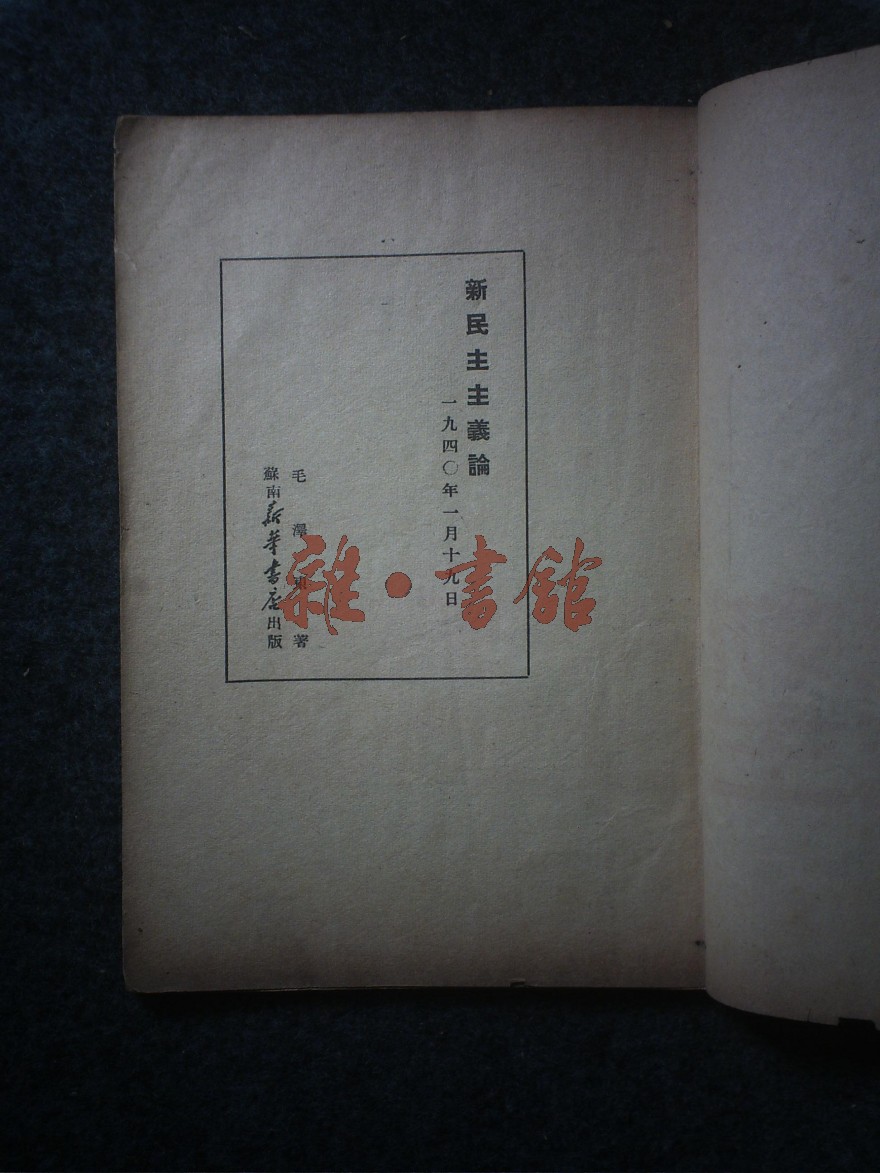 新民主主義論
一九四〇年一月十九日
毛澤東著
蘇南新華書店出版
雜·書館